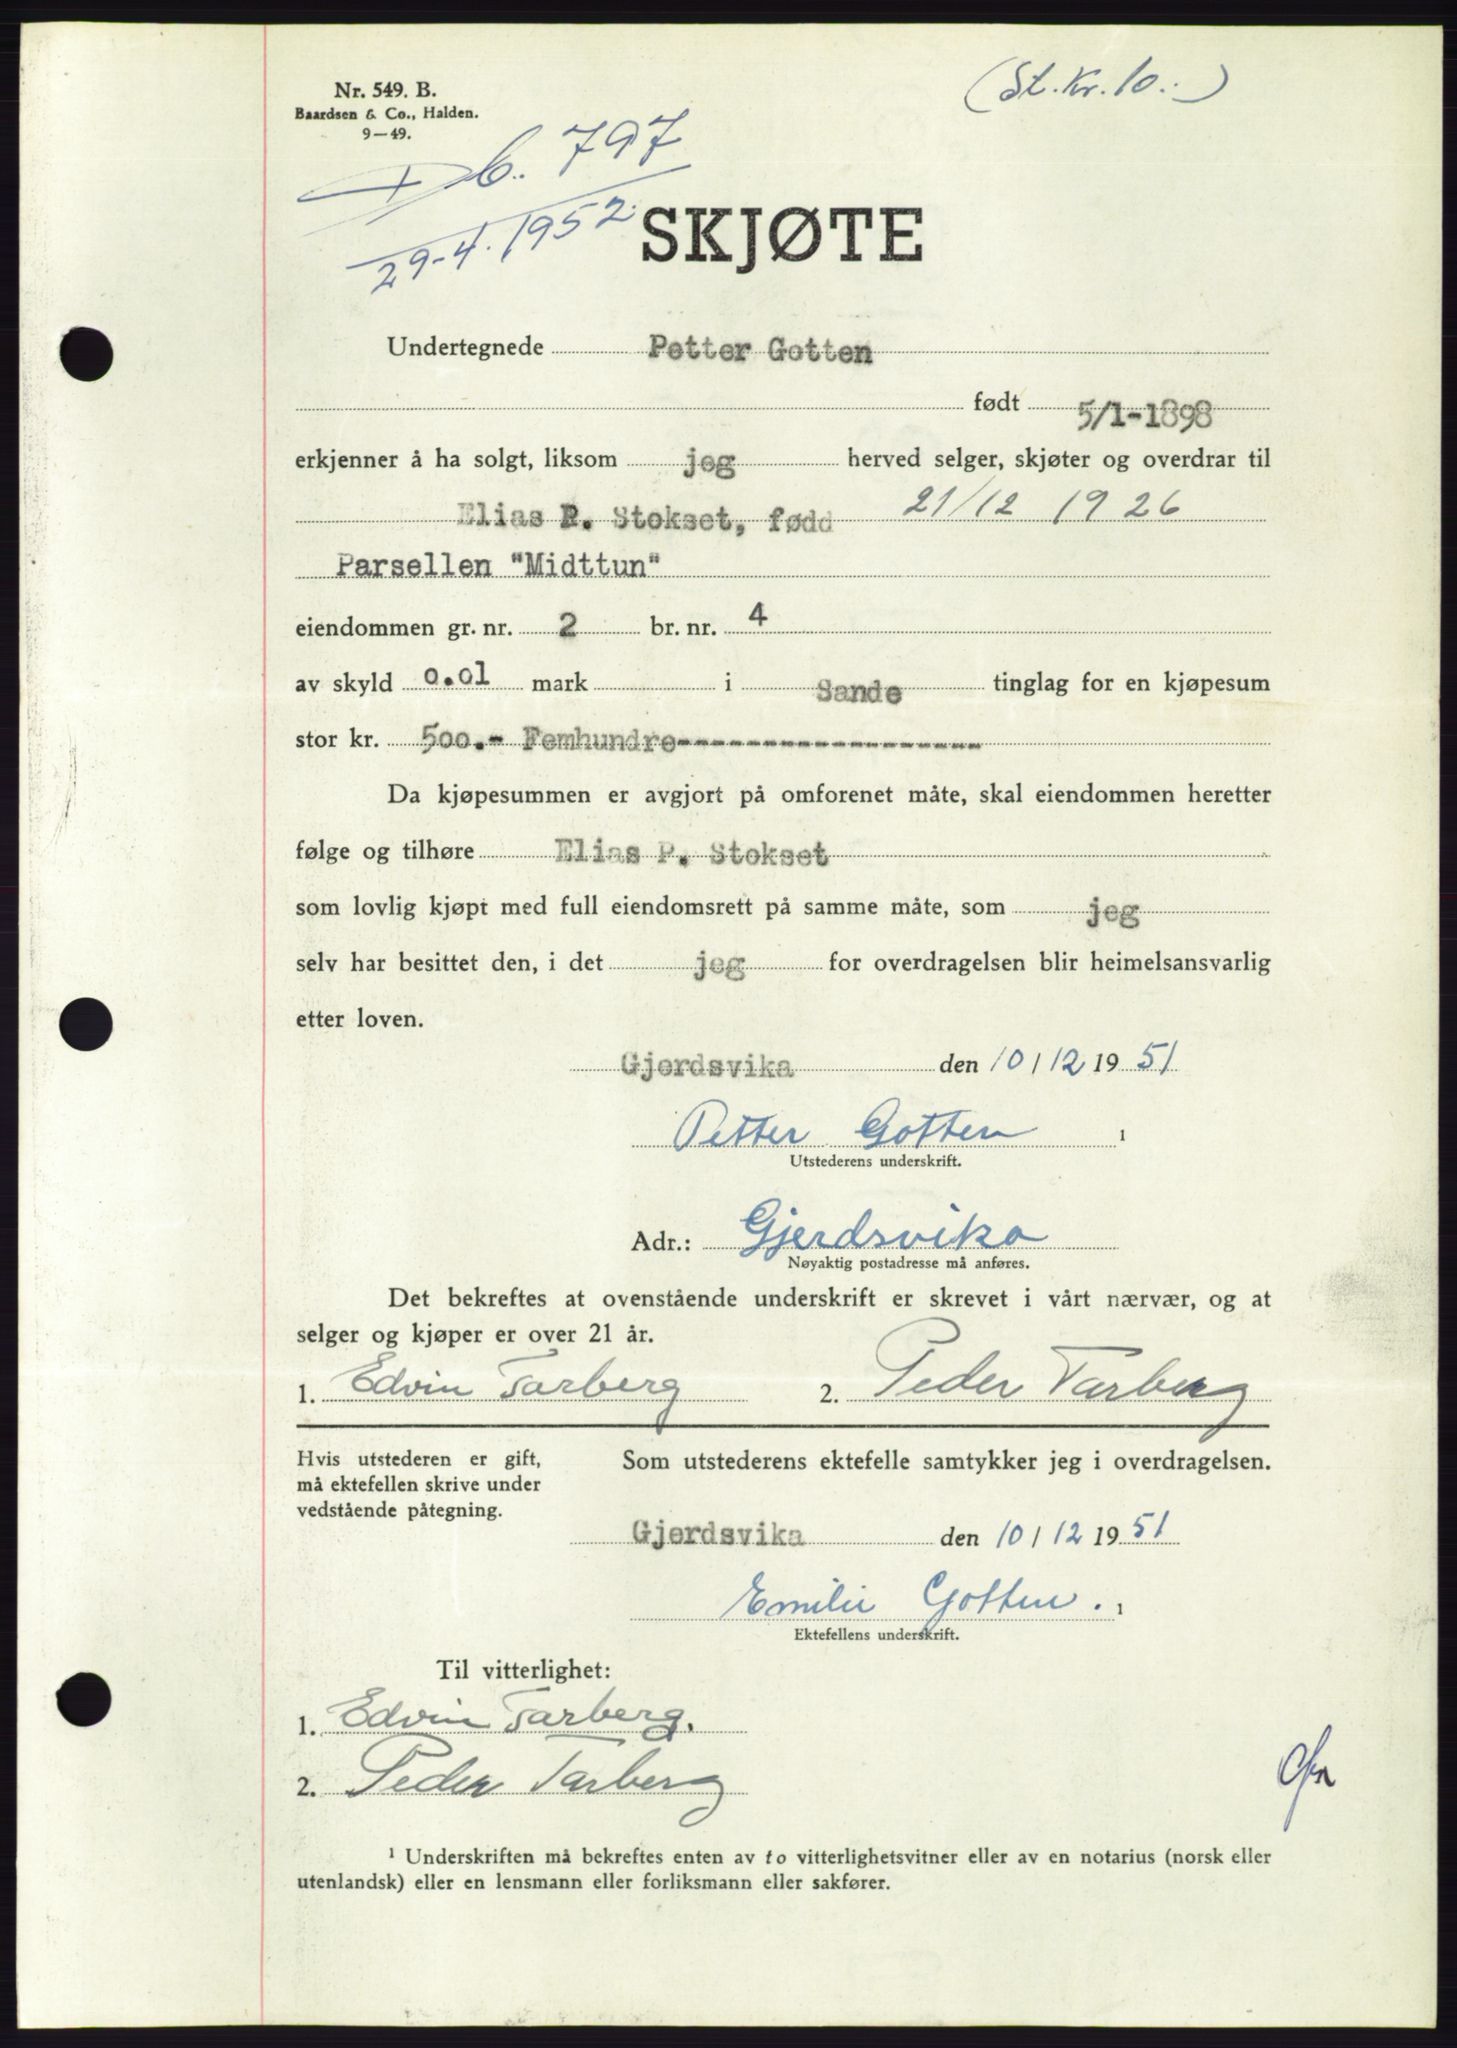 Nr. 549. B.
Baardsen & Co., Halden.
9—49.
(St. Kr. 10.-)
Db. 797
29-4. 1952
SKJØTE
Undertegnede Petter Gotten
født 5/1-1898
erkjenner å ha solgt, liksom jeg herved selger, skjøter og overdrar til
Elias P. Stokset, fødd 21/12 1926
Parsellen "Midttun"
eiendommen gr. nr. 2 br. nr. 4
av skyld 0.01 mark i Sande tinglag for en kjøpesum
stor kr. 500.- Femhundre----------------------
Da kjøpesummen er avgjort på omforenet måte, skal eiendommen heretter
følge og tilhøre Elias P. Stokset
som lovlig kjøpt med full eiendomsrett på samme måte, som jeg
selv har besittet den, i det jeg for overdragelsen blir heimelsansvarlig
etter loven.
Gjerdsvika den 10/12 1951
Petter Gotten 1
Utstederens underskrift.
Adr.: Gjerdsvika
Nøyaktig postadresse må anføres.
Det bekreftes at ovenstående underskrift er skrevet i vårt nærvær, og at
selger og kjøper er over 21 år.
1. Edvin Tarberg 2. Peder Tarberg
Hvis utstederen er gift,
må ektefellen skrive under
vedstående påtegning.
Som utstederens ektefelle samtykker jeg i overdragelsen.
Gjerdsvika den 10/12 1951
Emilie Gotten. 1
Ektefellens underskrift.
Til vitterlighet:
1. Edvin Tarberg.
2. Peder Tarberg
1 Underskriften må bekreftes enten av to vitterlighetsvitner eller av en notarius (norsk eller
utenlandsk) eller en lensmann eller forliksmann eller sakfører.